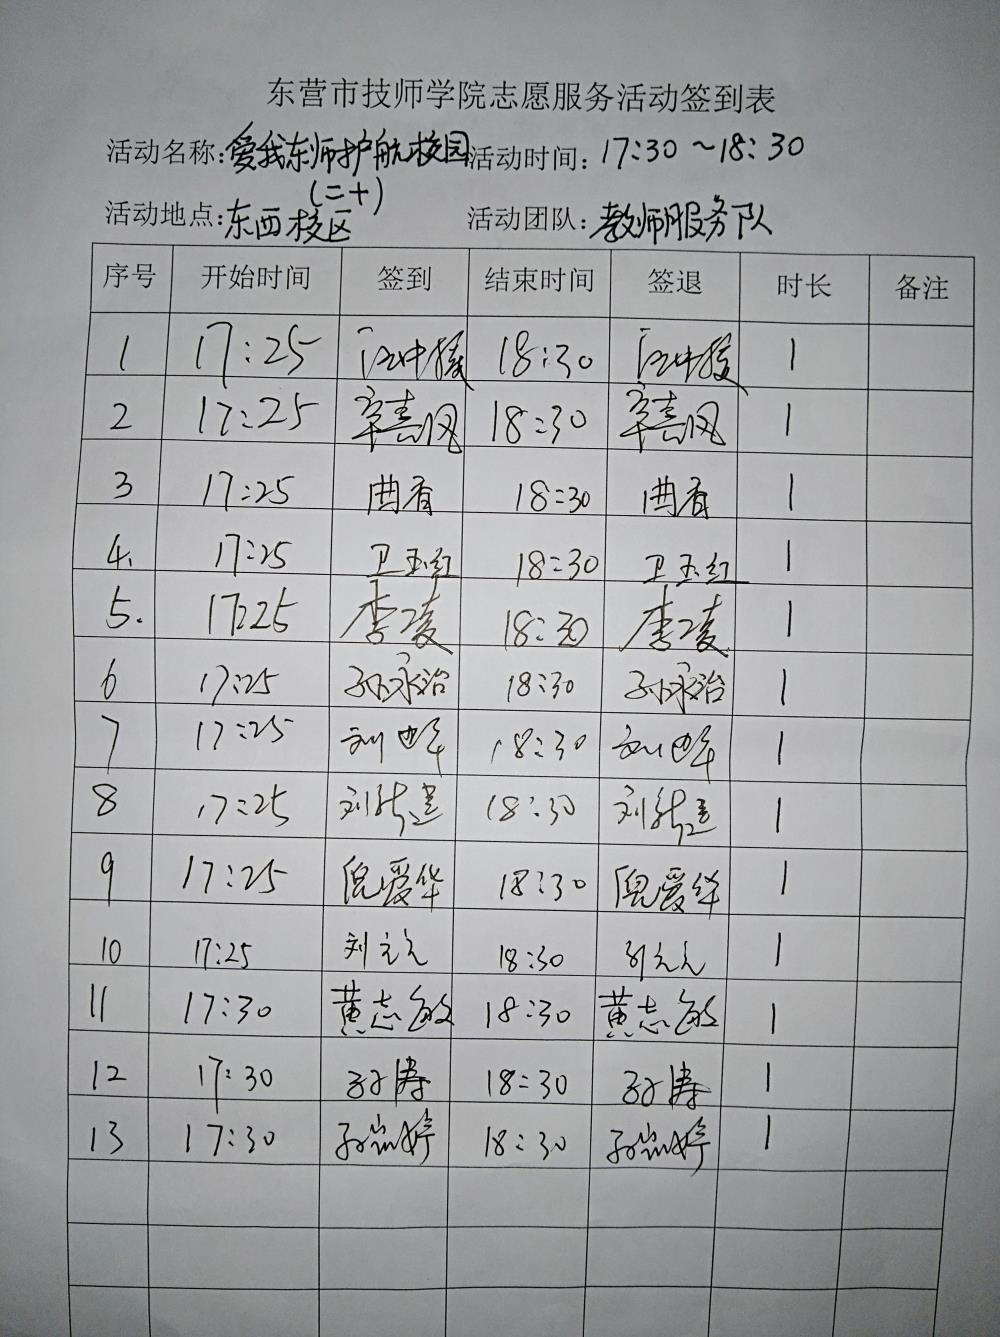 东营市技师学院志愿服务活动签到表
活动名称:爱我东师护航校园 活动时间: 17:30~18:30
(二十)
活动地点:东西校区 活动团队:教师服务队
序号 开始时间 签到 结束时间 签退 时长 备注
1 17:25 18:30 1
2 17:25 辛志风 18:30 辛志风 1
3 17:25 曲香 18:30 曲香 1
4. 17:25 卫玉红 18:30 卫玉红 1
5. 17:25 李凌 18:30 李凌 1
6 17:25 孙永治 18:30 孙永治 1
7 17:25 刘 18:30 刘 1
8 17:25 刘 18:30 刘 1
9 17:25 倪爱华 18:30 倪爱华 1
10 17:25 刘元元 18:30 刘元元 1
11 17:30 黄志敏 18:30 黄志敏 1
12 17:30 孙涛 18:30 孙涛 1
13 17:30 孙岚婷 18:30 孙岚婷 1